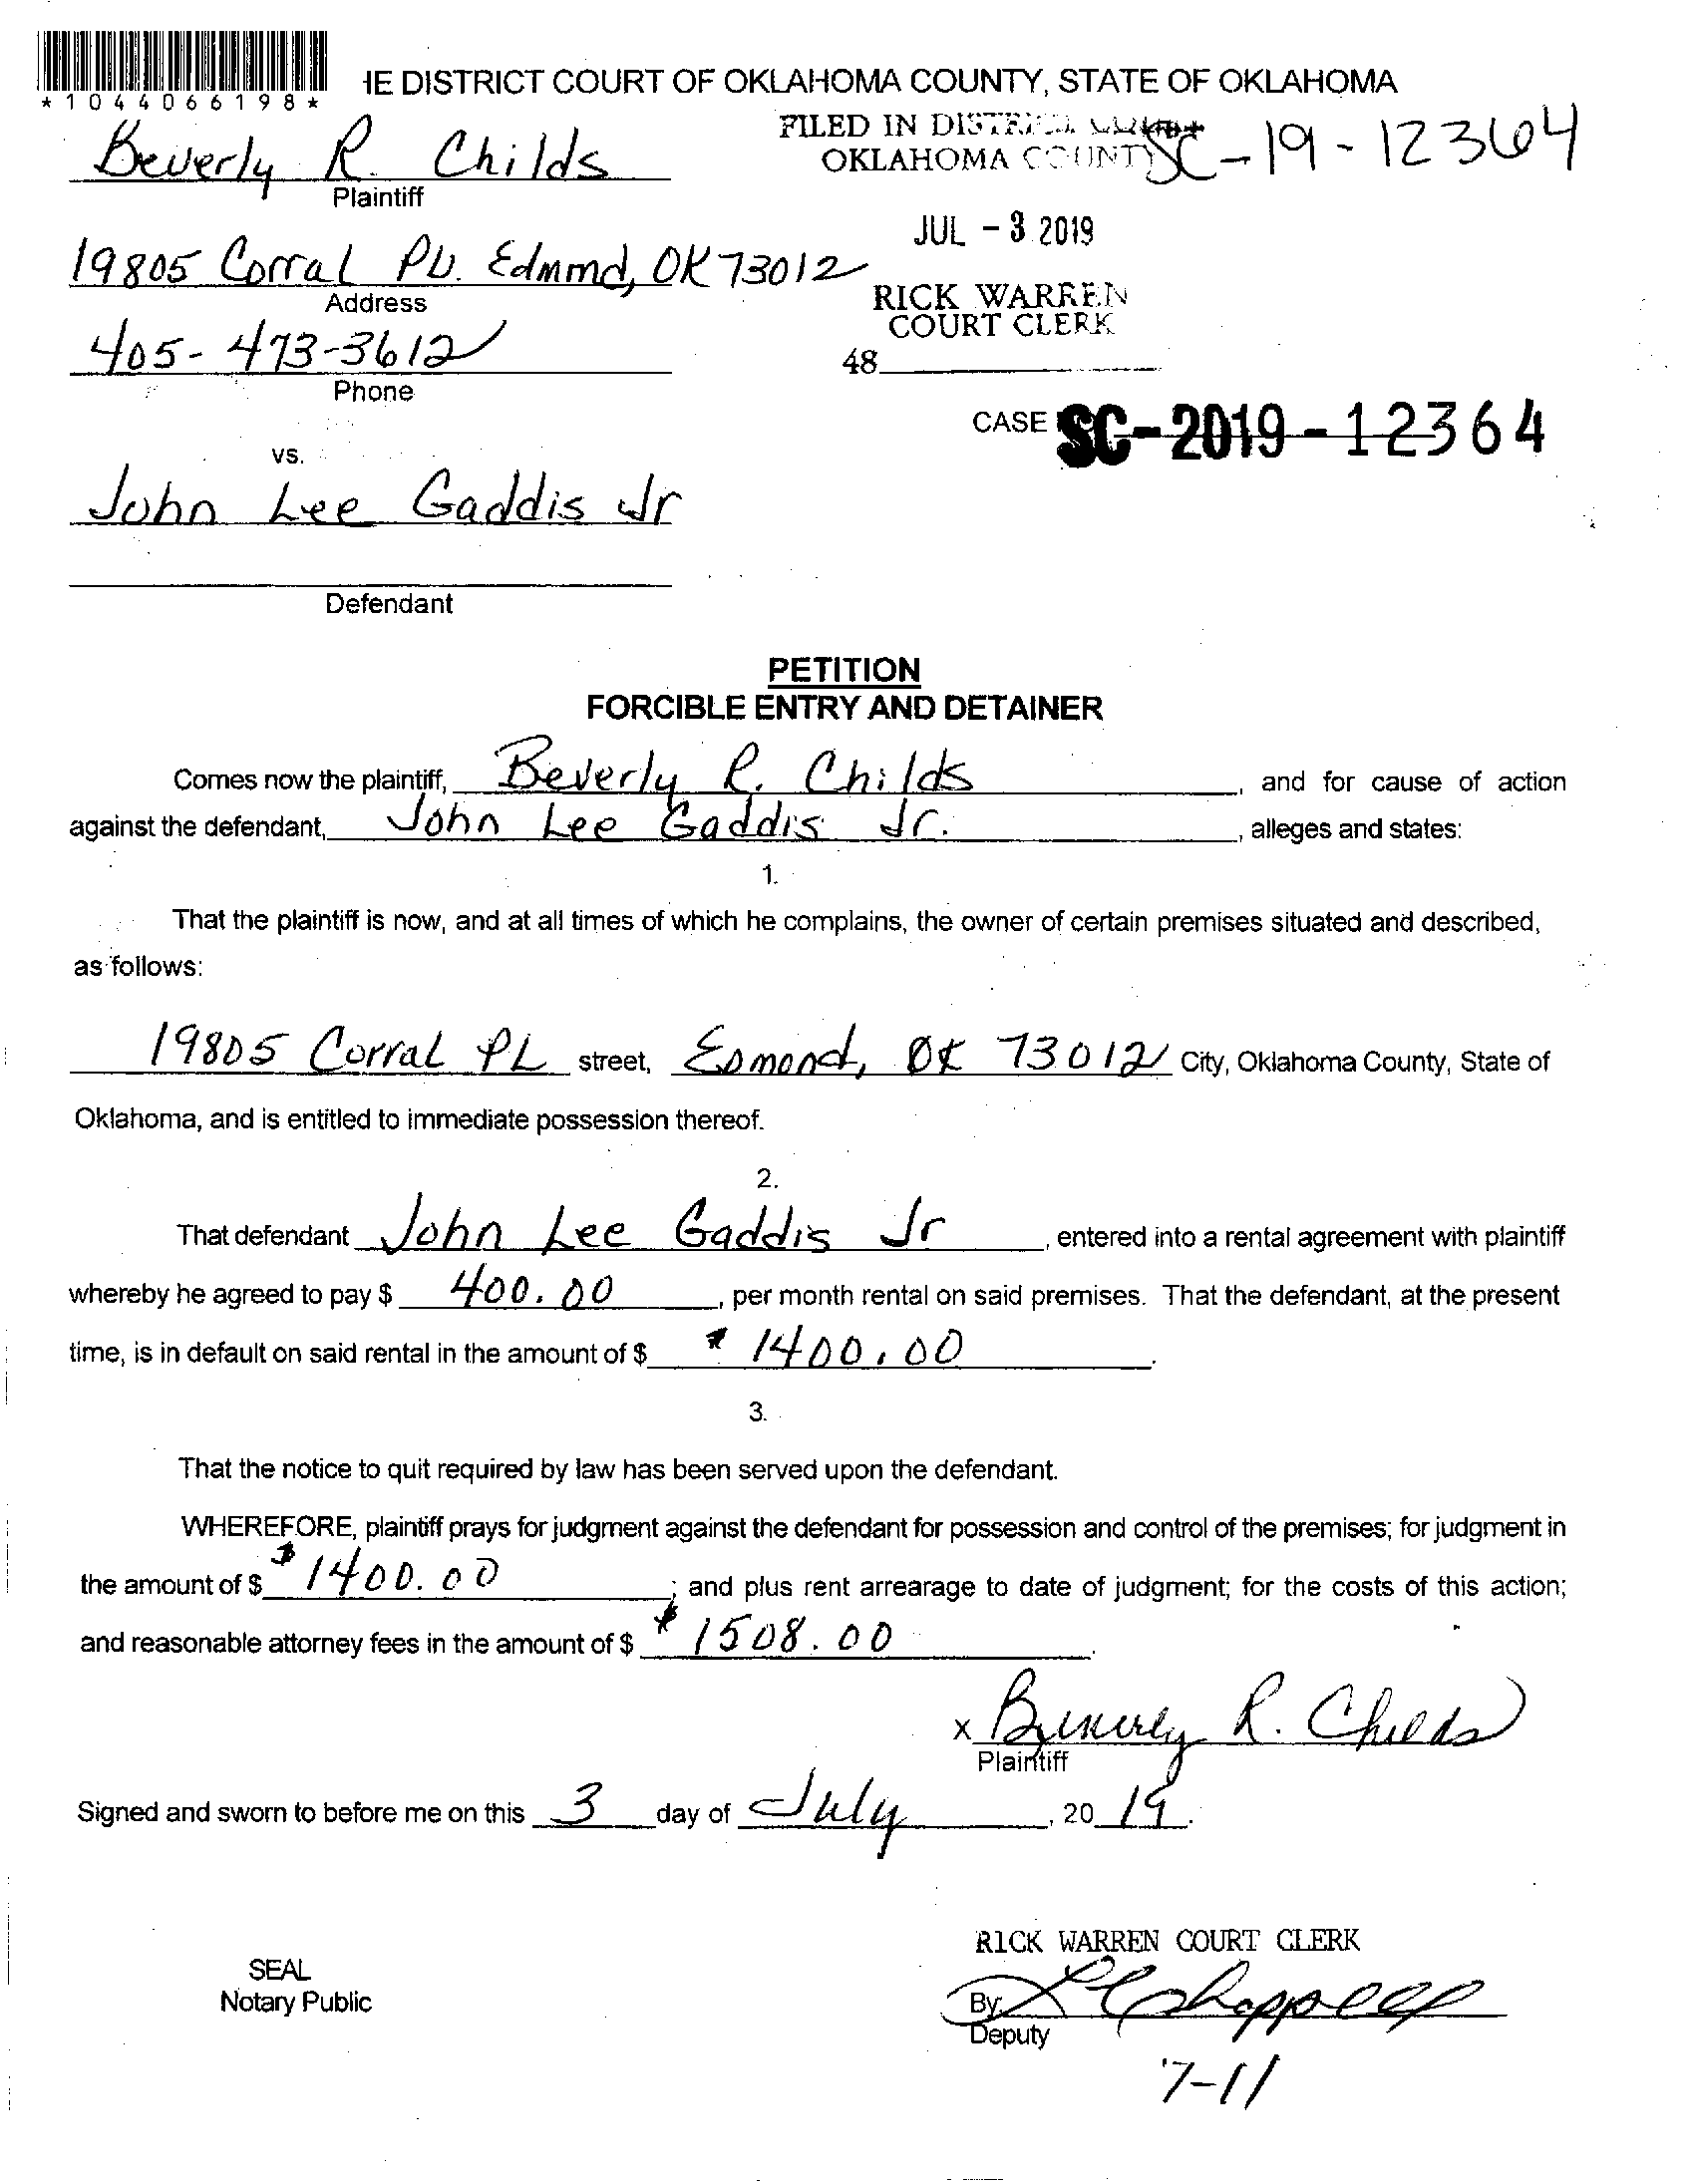 *1044066198*
IE DISTRICT COURT OF OKLAHOMA COUNTY, STATE OF OKLAHOMA
FILED IN DISTRICT COURT
OKLAHOMA COUNTY
SC-19-12364
Beverly R. Childs
Plaintiff
JUL - 3 2019
19805 Corral PL. Edmond, OK 73012
Address
RICK WARREN
COURT CLERK
405-473-3612
48
Phone
CASE SC-2019-12364
vs.
John Lee Gaddis Jr
Defendant
PETITION
FORCIBLE ENTRY AND DETAINER
Comes now the plaintiff, Beverly R. Childs, and for cause of action
against the defendant, John Lee Gaddis Jr., alleges and states:
1.
That the plaintiff is now, and at all times of which he complains, the owner of certain premises situated and described,
as follows:
19805 Corral PL street, Edmond, OK 73012 City, Oklahoma County, State of
Oklahoma, and is entitled to immediate possession thereof.
2.
That defendant John Lee Gaddis Jr, entered into a rental agreement with plaintiff
whereby he agreed to pay $ 400.00, per month rental on said premises. That the defendant, at the present
time, is in default on said rental in the amount of $ $1400.00.
3.
That the notice to quit required by law has been served upon the defendant.
WHEREFORE, plaintiff prays for judgment against the defendant for possession and control of the premises; for judgment in
the amount of $ $1400.00; and plus rent arrearage to date of judgment; for the costs of this action;
and reasonable attorney fees in the amount of $ $1508.00.
x Beverly R. Childs
Plaintiff
Signed and sworn to before me on this 3 day of July, 2019.
RICK WARREN COURT CLERK
SEAL
Notary Public
By
Deputy
7-11